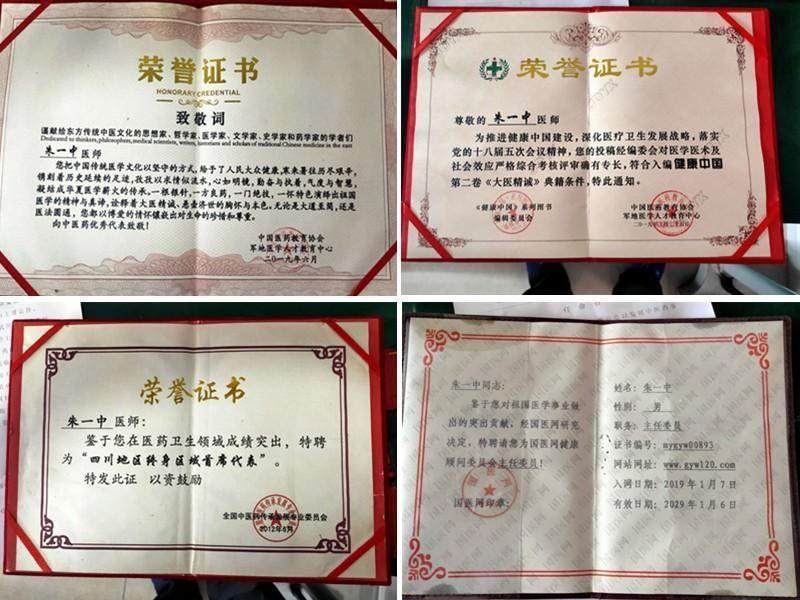 荣誉证书
HONORARY CREDENTIAL
致敬词
谨献给东方传统中医文化的思想家、哲学家、医学家、文学家、史学家和药学家的学者们
Dedicated to thinkers, philosophers, medical scientists, writers, historians and scholars of traditional Chinese medicine in the east
朱一中医师
您把中国传统医学文化以坚守的方式，给予了人民大众健康，寒来暑往历尽艰辛，
镌刻着历史延续的足迹，孜孜以求情似流水，心如明镜，勤奋与执着，气度与智慧，
凝结成华夏医学薪火的传承。一根银针，一方良药，一门绝技，一怀特色演绎出祖国
医学的精神与真谛，诠释着大医精诚、悬壶济世的胸怀与本色。无论是大道至简，还是
医法圆通，您都以博爱的情怀镶嵌出对生命的珍惜和厚重。
向中医药优秀代表致敬！
中国医药教育协会
军地医学人才教育中心
二〇一九年六月
荣誉证书
尊敬的 朱一中 医师
为推进健康中国建设，深化医疗卫生发展战略，落实
党的十八届五次会议精神，您的投稿经编委会对医学医术及
社会效应严格综合考核评审确有专长，符合入编健康中国
第二卷《大医精诚》典籍条件，特此通知。
《健康中国》系列图书
编辑委员会
中国医药教育协会
军地医学人才教育中心
荣誉证书
朱一中 医师：
鉴于您在医药卫生领域成绩突出，特聘
为“四川地区终身区域首席代表”。
特发此证 以资鼓励
全国中医药传承发展专业委员会
2012年6月
朱一中同志：
鉴于您对祖国医学事业做
出的突出贡献，经国医网研究
决定，特聘请您为国医网健康
顾问委员会主任委员！
国医网印章：
姓名：朱一中
性别：男
职务：主任委员
证书编号：mygyw00893
网站网址：www.gyw120.com
入网日期：2019年1月7日
有效日期：2029年1月6日